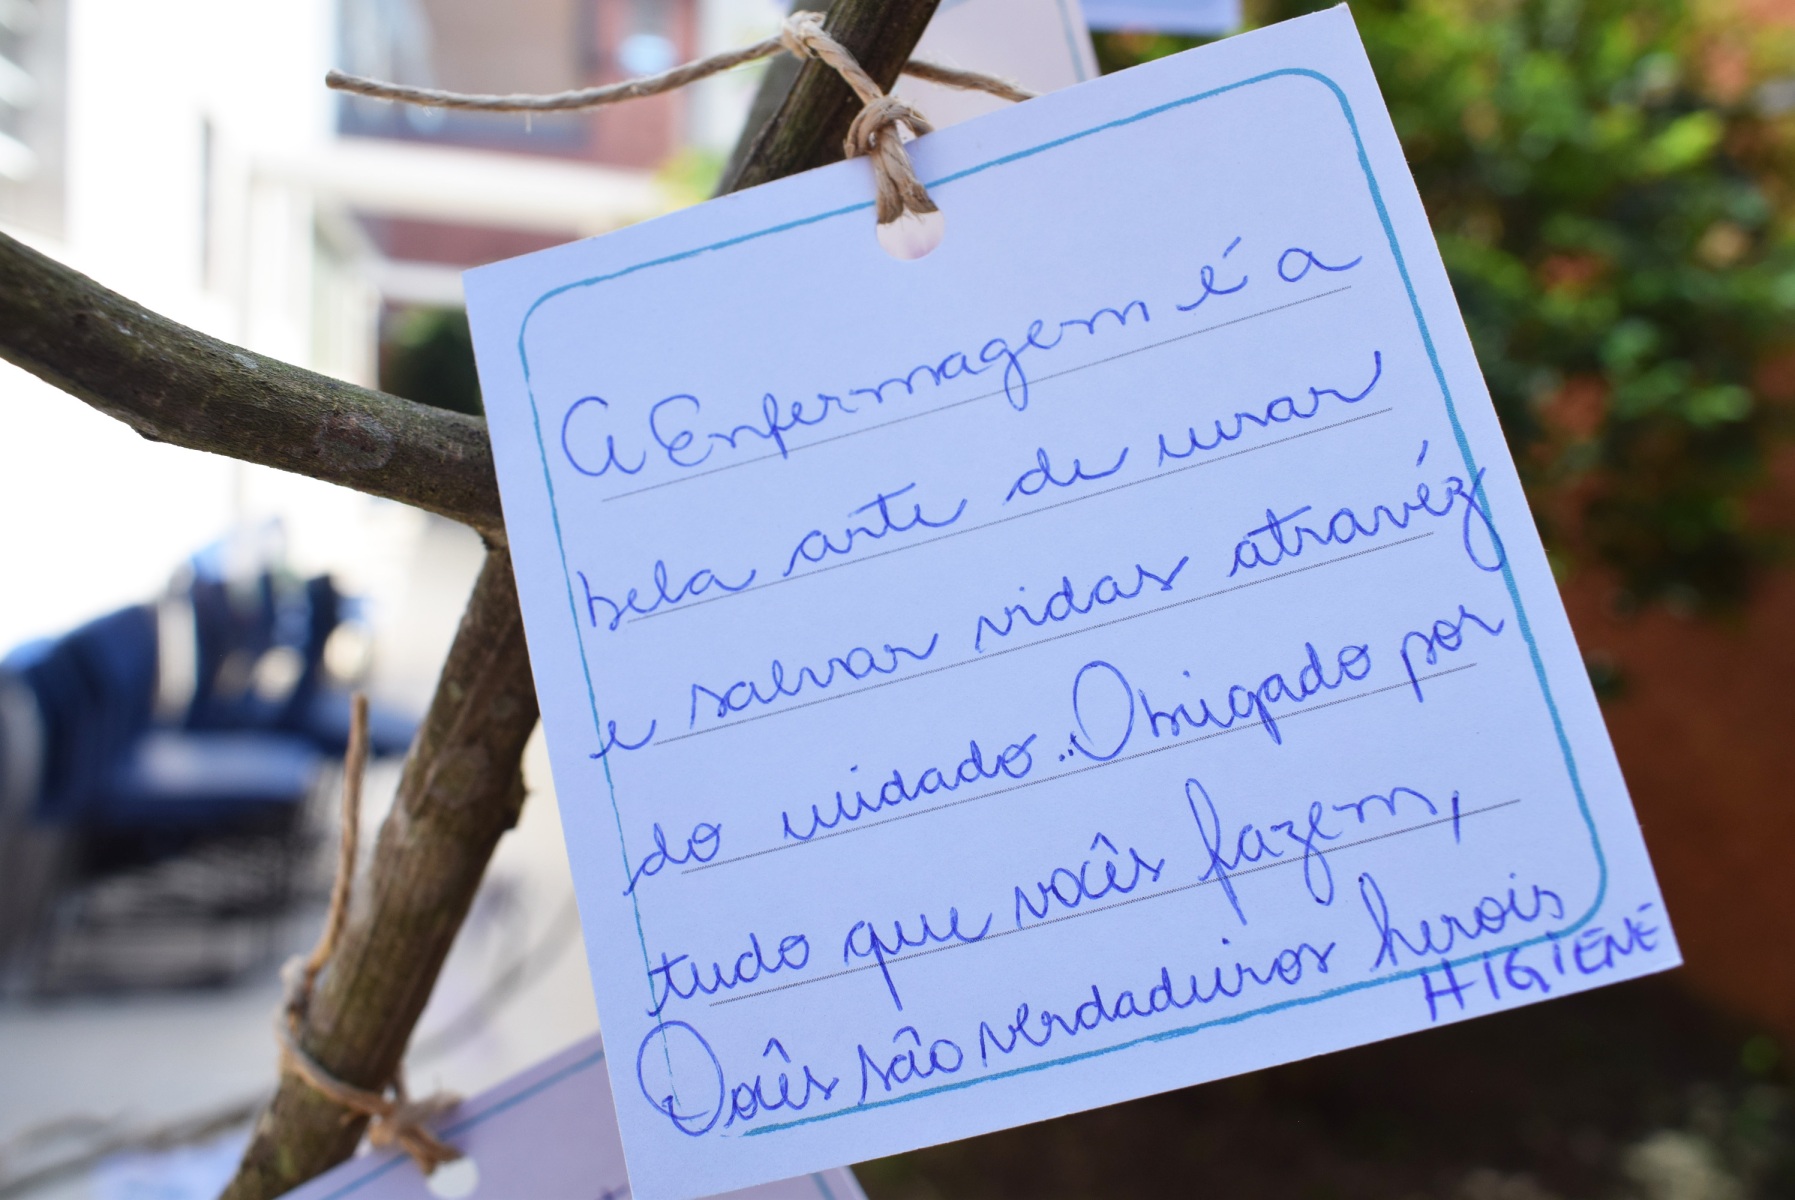 A Enfermagem é a
bela arte de curar
e salvar vidas atravéz
do cuidado.. Obrigado por
tudo que vocês fazem,
Vocês são verdadeiros herois
HIGIENE